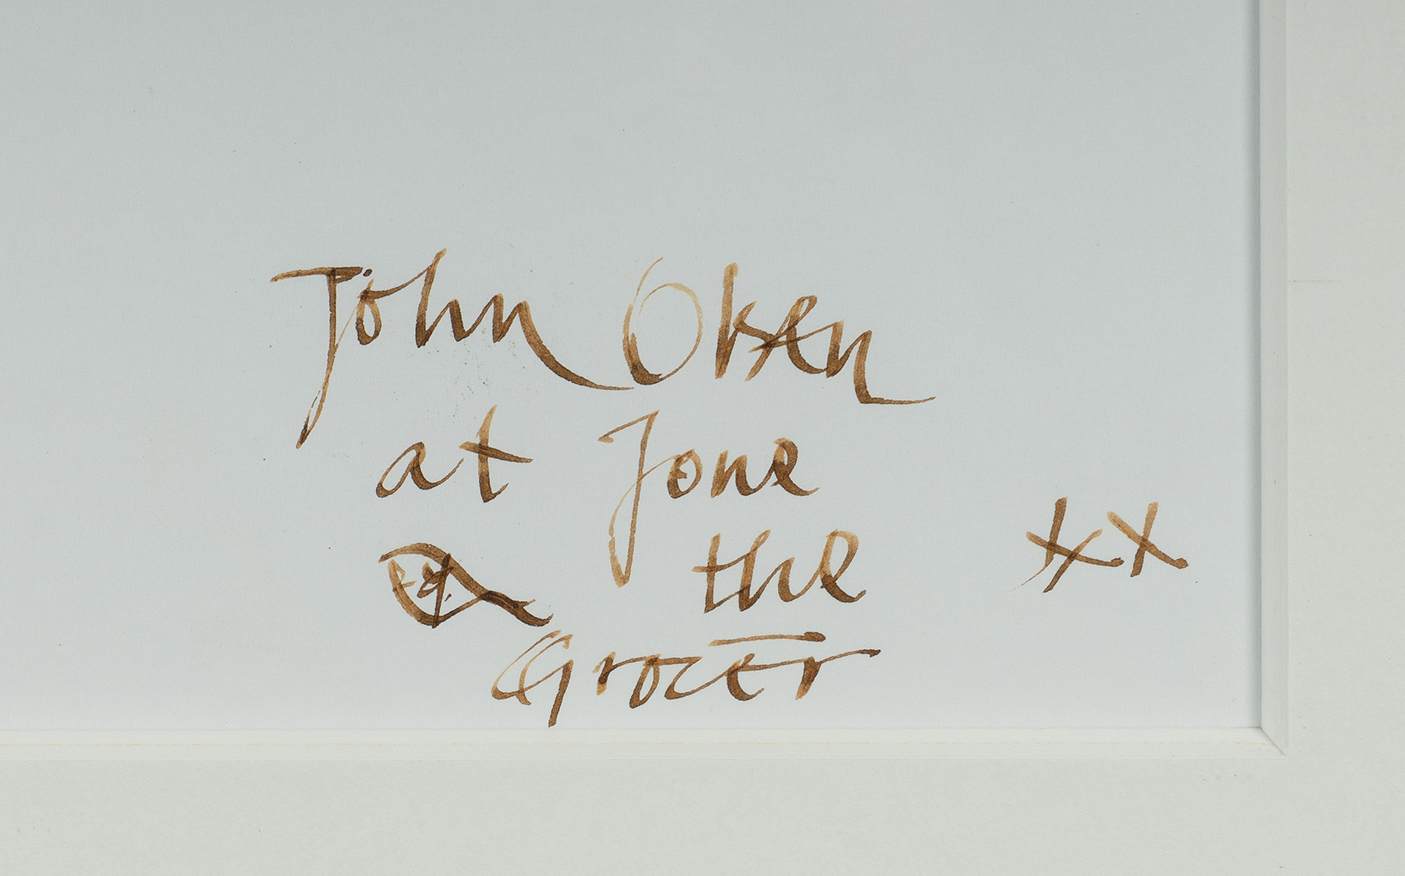 John Olsen
at Jone
the xx
Grocer